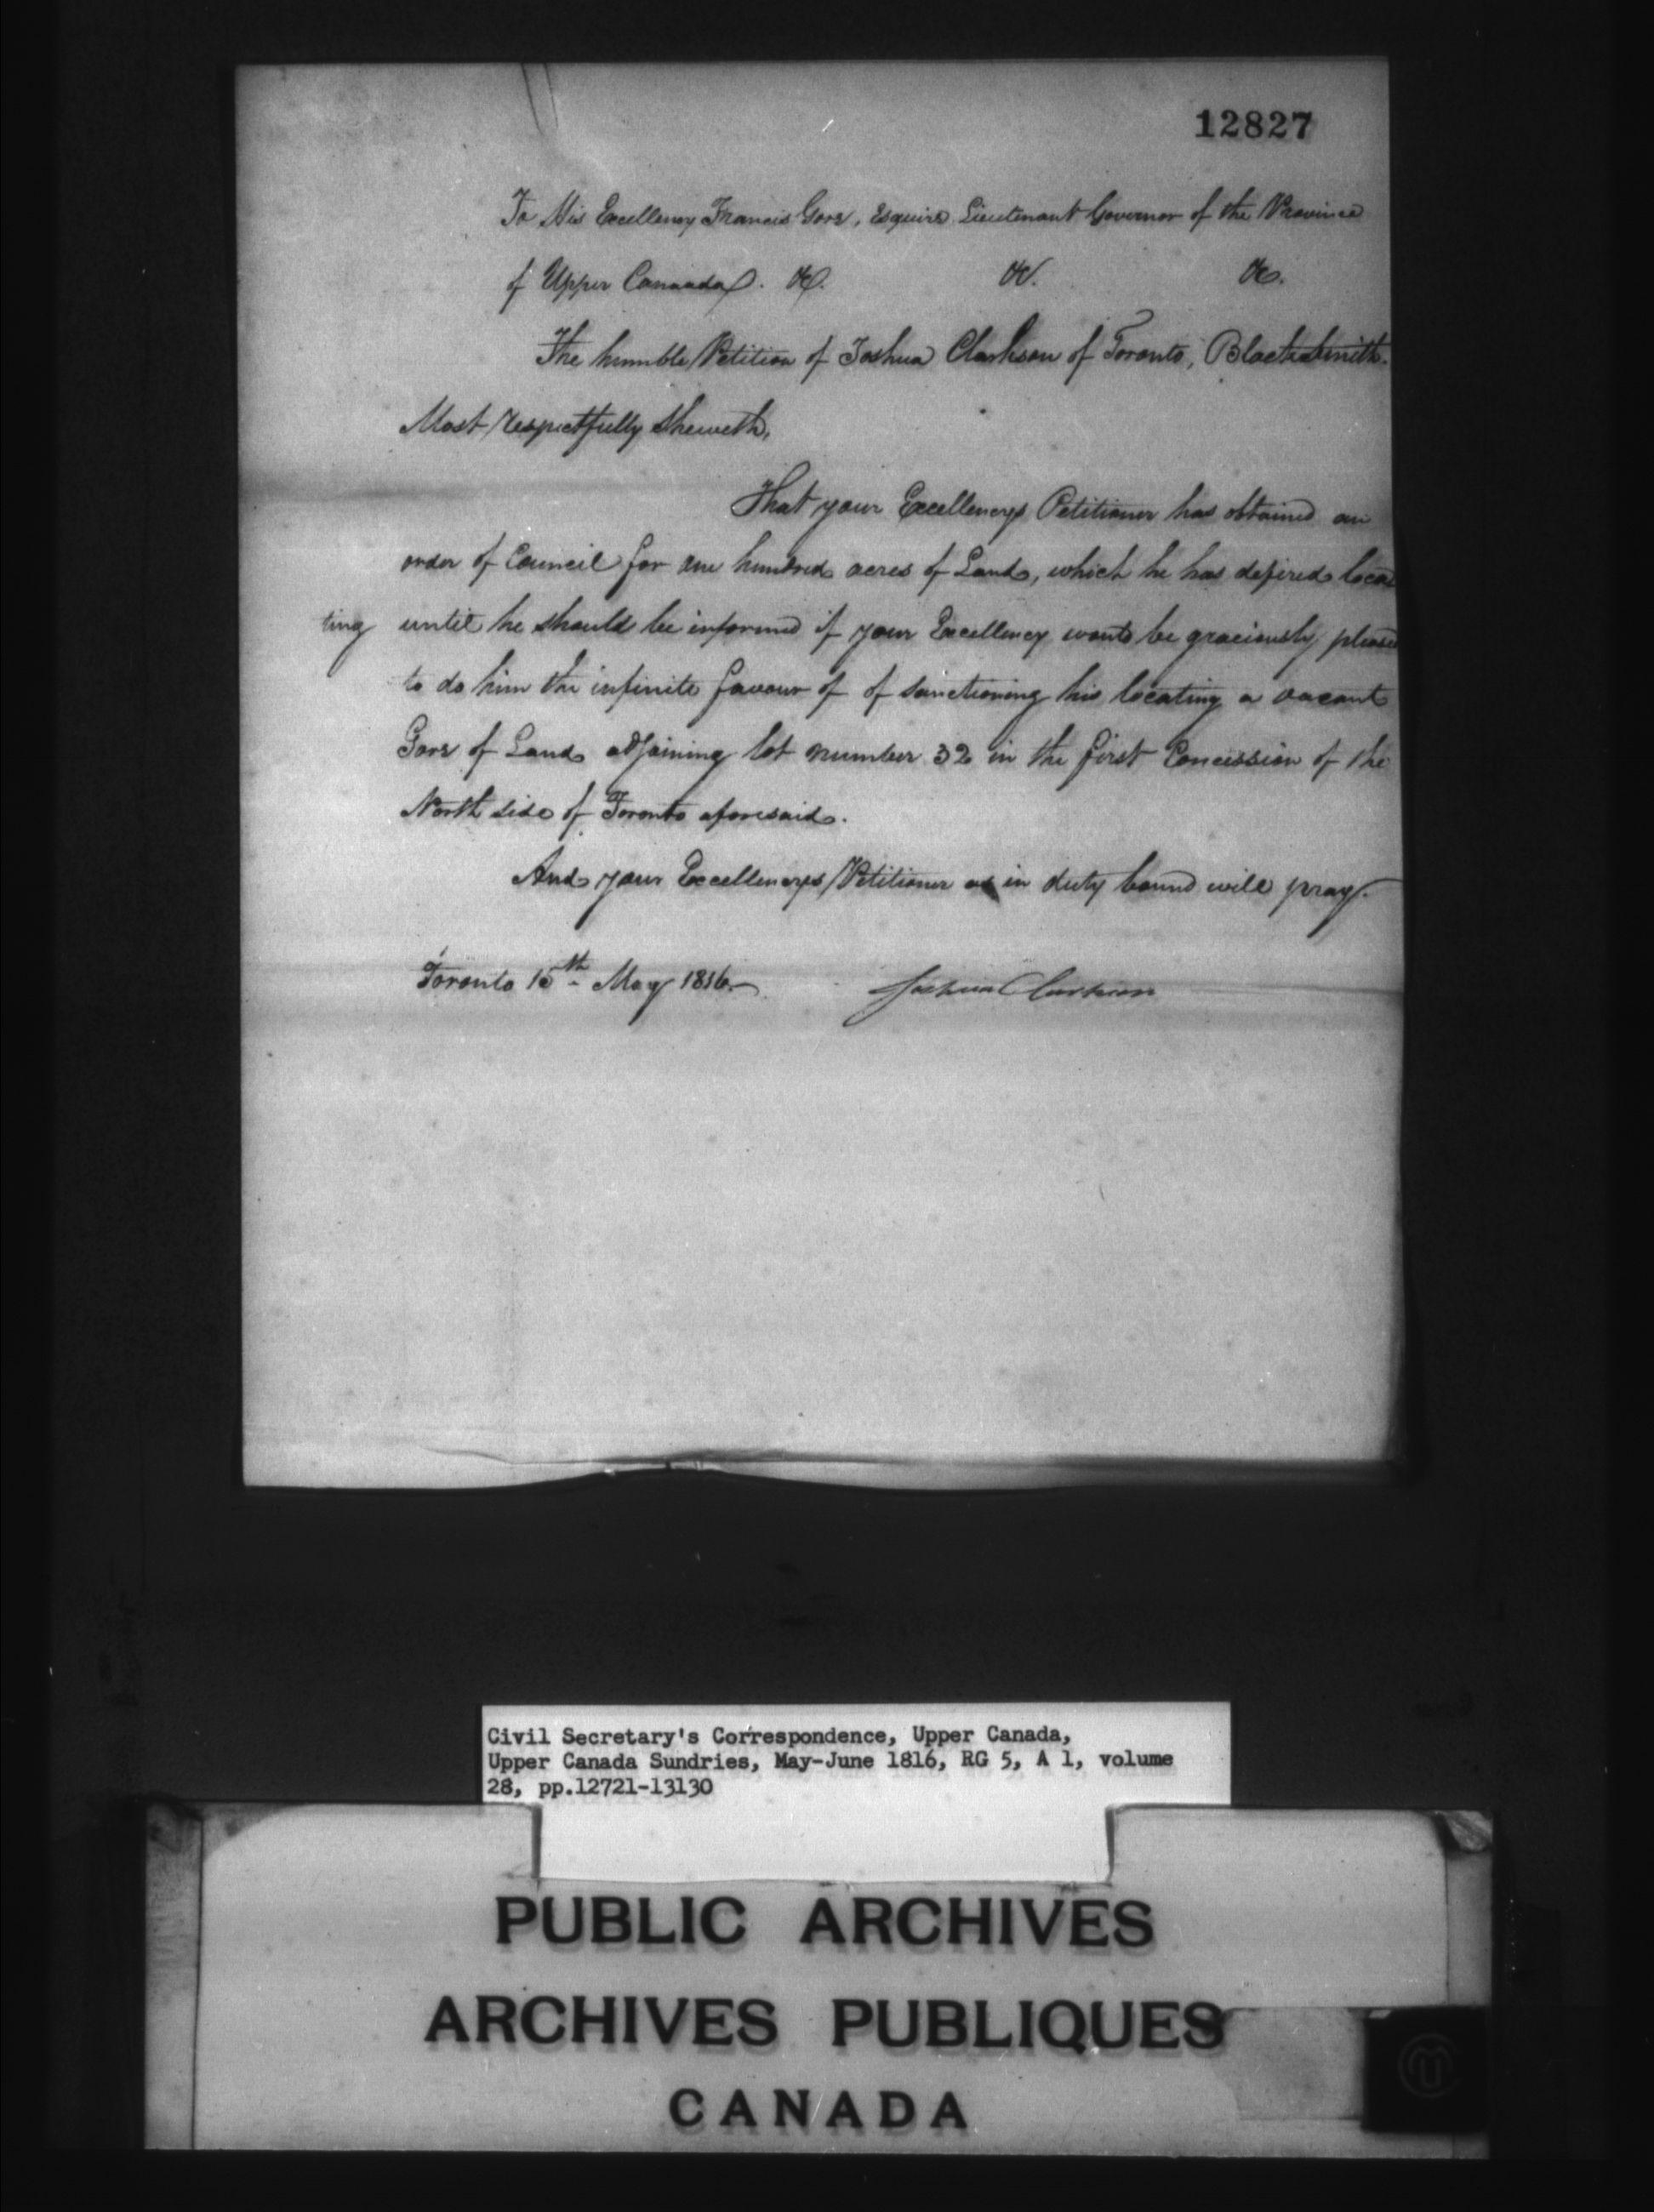 12827
To His Excellency Francis Gore, Esquire Lieutenant Governor of the Province
of Upper Canada. &c. &c. &c.
The humble Petition of Joshua Clarkson of Toronto, Blacksmith.
Most respectfully Sheweth,
That your Excellencys Petitioner has obtained an
order of Council for one hundred acres of Land, which he has defired loca
ting until he should be informed if your Excellency would be graciously pleased
to do him the infinite favour of of sanctioning his locating a vacant
Gore of Land adjoining lot number 32 in the first Concession of the
North side of Toronto aforesaid.
And your Excellencys Petitioner as in duty bound will pray.
Toronto 15th May 1816
Joshua Clarkson
Civil Secretary's Correspondence, Upper Canada,
Upper Canada Sundries, May-June 1816, RG 5, A 1, volume
28, pp.12721-13130
PUBLIC ARCHIVES
ARCHIVES PUBLIQUES
CANADA